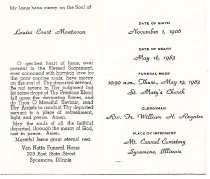 My Jesus have mercy on the Soul of
Louise Court Montavon
O gentlest heart of Jesus, ever
present in the Blessed Sacrament,
ever consumed with burning love for
the poor captive souls, have mercy
on the soul of Thy departed servant.
Be not severe in Thy judgment but
let some drops of Thy Precious Blood
fall upon the devouring flames, and
do Thou O Merciful Saviour, send
Thy Angels to conduct Thy departed
servant to a place of refreshment,
light and peace. Amen.
May the souls of all the faithful
departed, through the mercy of God,
rest in peace. Amen.
Merciful Jesus grant eternal rest.
Van Natta Funeral Home
203 East State Street
Sycamore, Illinois
DATE OF BIRTH
November 1, 1906
DATE OF DEATH
May 16, 1983
FUNERAL MASS
10:30 a.m., Thurs., May 19, 1983
St. Mary's Church
CLERGYMAN
Rev. Dr. William H.
PLACE OF INTERMENT
Mt. Carmel Cemetery
Sycamore, Illinois